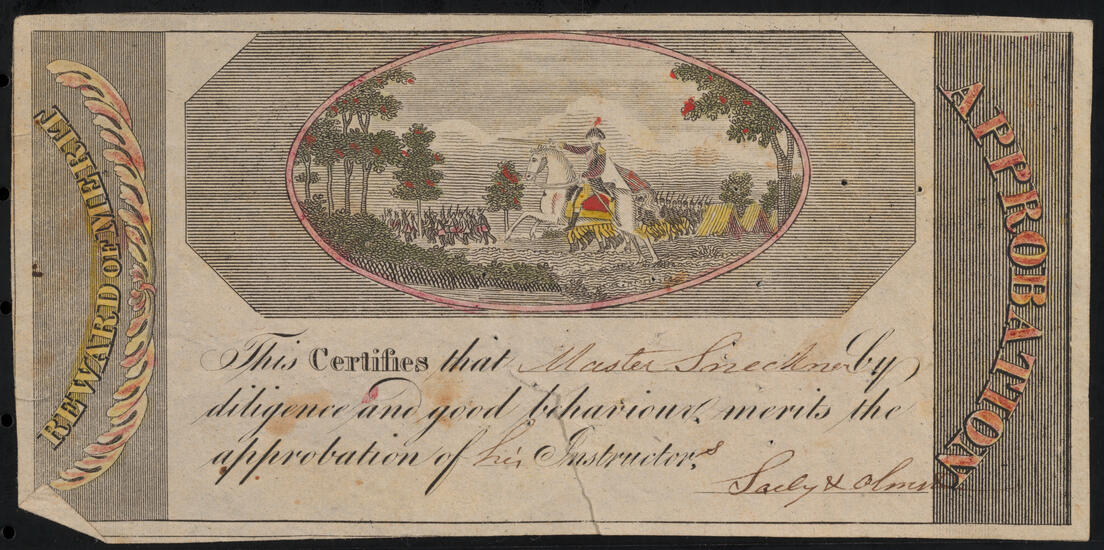 REWARD OF MERIT
APPROBATION
This Certifies that Master by
diligence and good behaviour, merits the
approbation of his Instructors,
&